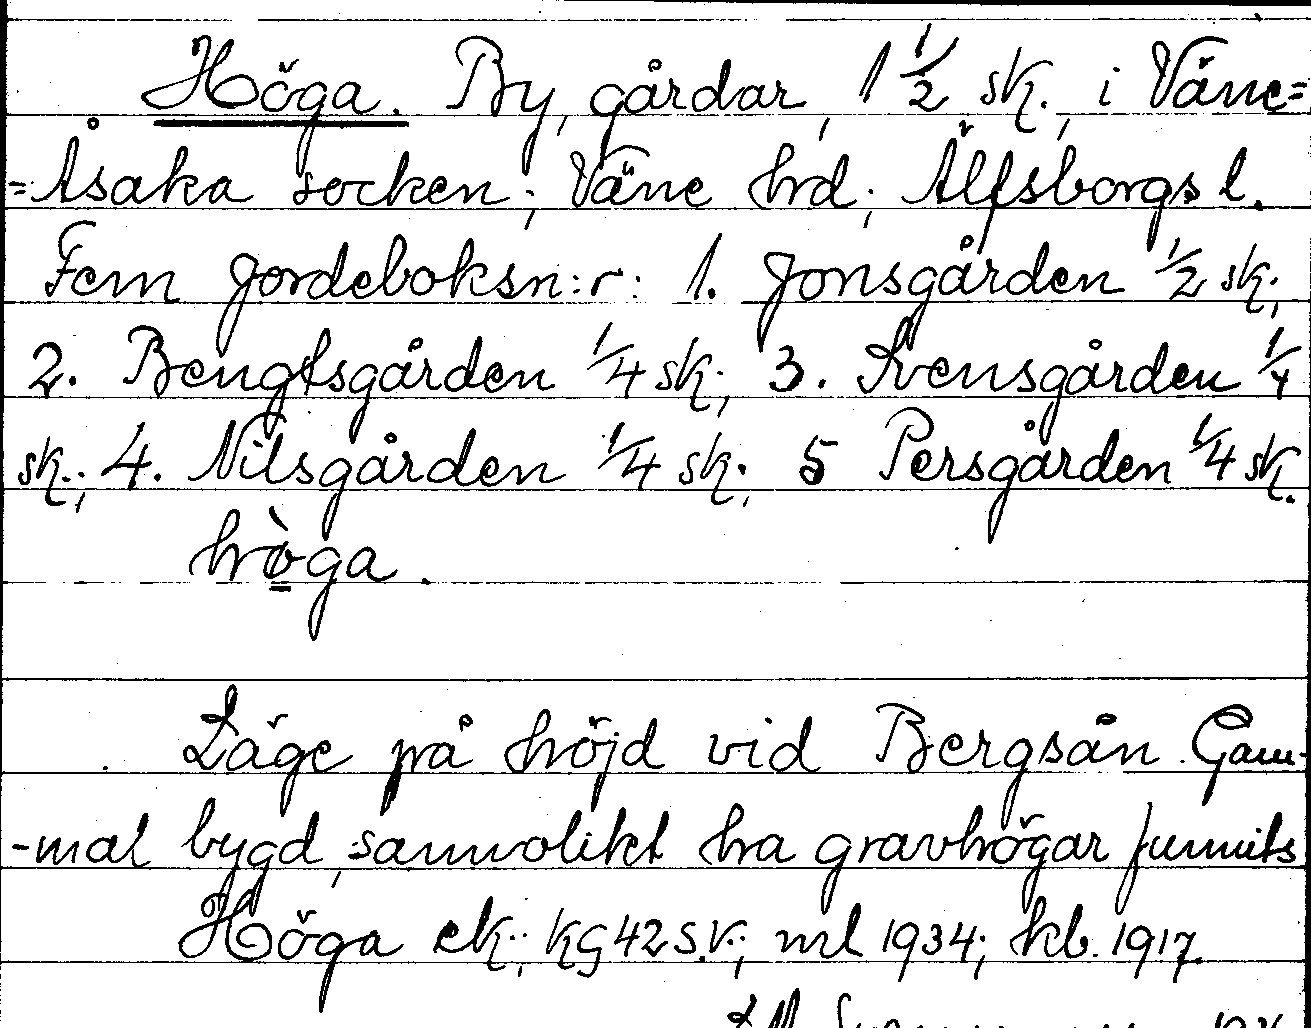 Höga. By, gårdar, 1 1/2 sk., i Väne=
=Åsaka socken; Väne hrd; Älfsborgs l.
Fem Jordeboksn:r: 1. Jonsgården 1/2 sk.;
2. Bengtsgården 1/4 sk.; 3. Svensgården 1/4
sk.; 4. Nilsgården 1/4 sk.; 5 Persgården 1/4 sk.
hò̱ga.
Läge på höjd vid Bergsån. Gam-
-mal bygd, sannolikt ha gravhögar funnits.
Höga ek.; KG 42 S.V.; ml 1934; kb. 1917.